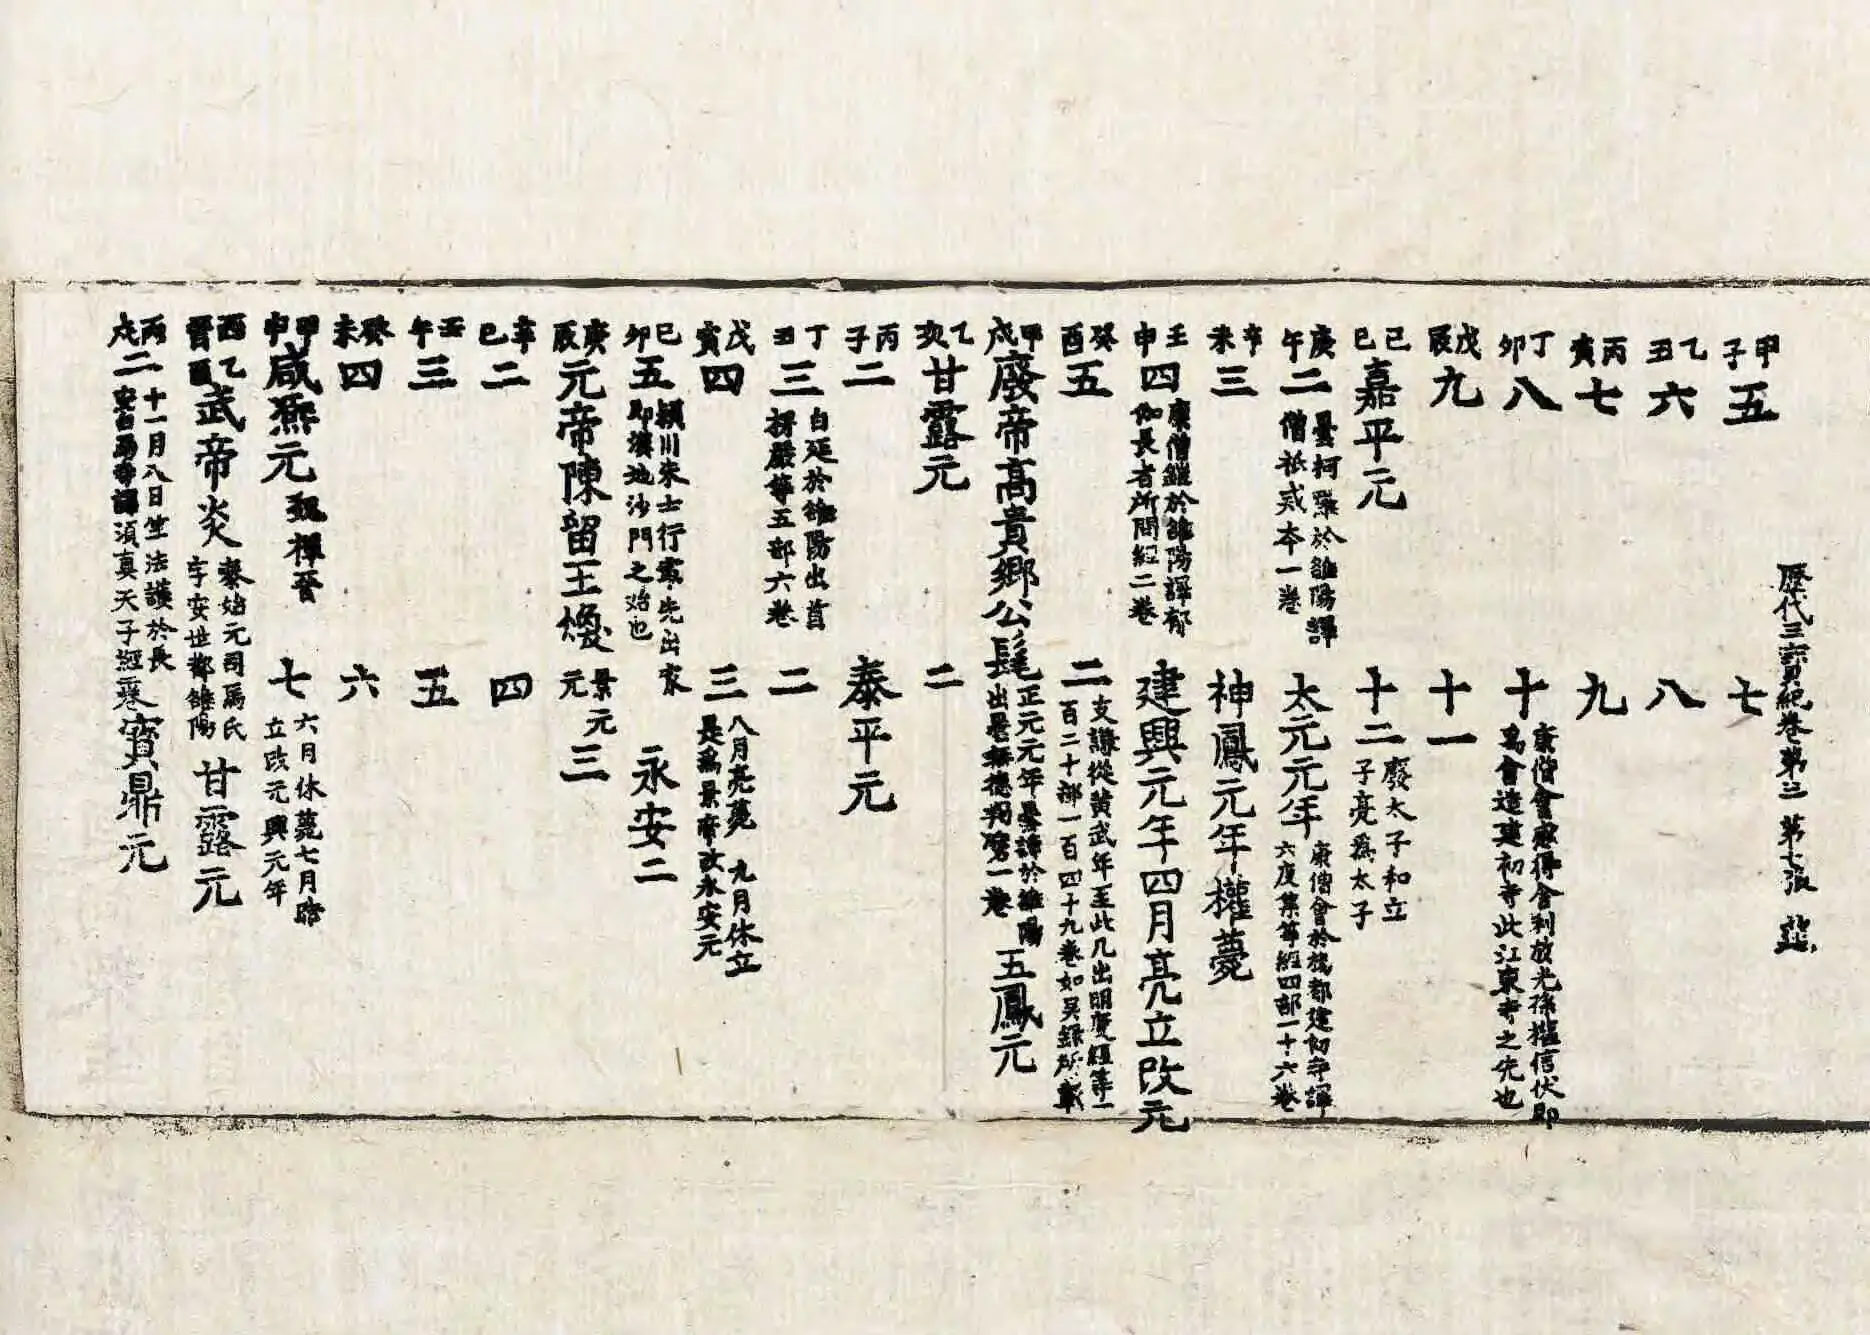 歷代三寶紀卷第三 第七張
甲子五 七
乙丑六 八
丙寅七 九
丁卯八 十 康僧會感得舍利放光孫權信伏即爲會造建初寺此江東寺之先也
戊辰九 十一
己巳嘉平元 十二 廢太子和立子亮爲太子
庚午二 曇柯羅於雒陽譯僧祇戒本一卷 太元元年 康僧會於楊都建初寺譯六度集等經四部一十六卷
辛未三 神鳳元年權薨
壬申四 康僧鎧於雒陽譯郁伽長者所問經二卷 建興元年四月亮立改元
癸酉五 二 支謙從黃武年至此凡出明度經等一百二十部一百四十九卷如吳錄所載
甲戌廢帝高貴鄉公髦 正元元年曇諦於雒陽出曇無德羯磨一卷 五鳳元
乙亥甘露元 二
丙子二 泰平元
丁丑三 白延於雒陽出首楞嚴等五部六卷 二
戊寅四 三 八月亮薨 九月休立是爲景帝改永安元
己卯五 潁川朱士行最先出家即漢地沙門之始也 永安二
庚辰元帝陳留王煥 景元元 三
辛巳二 四
壬午三 五
癸未四 六
甲申咸熙元 魏禪晉 七 六月休薨七月晧立改元興元年
西晉乙酉武帝炎 泰始元司馬氏字安世都雒陽 甘露元
丙戌二 十一月八日竺法護於長安白馬寺譯須真天子經 寶鼎元